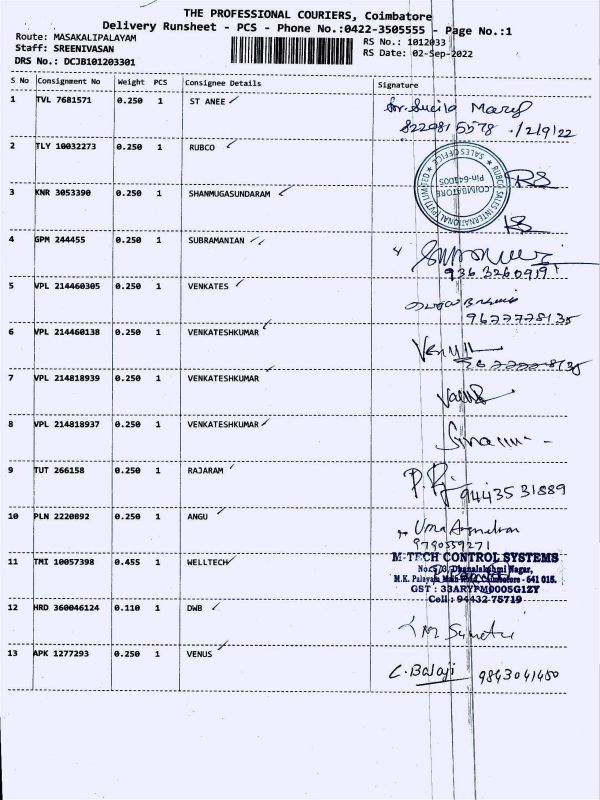 THE PROFESSIONAL COURIERS, Coimbatore
Delivery Runsheet - PCS - Phone No.:0422-3505555 - Page No.:1
Route: MASAKALIPALAYAM
RS No.: 1012033
Staff: SREENIVASAN
RS Date: 02-Sep-2022
DRS No.: DCJB101203301
S No Consignment No Weight PCS Consignee Details Signature
1 TVL 7681571 0.250 1 ST ANEE Sr. Sucila Mary
2 TLY 10032273 0.250 1 RUBCO
RUBCO SALES INTERNATIONAL (PVT) LIMITED
SALES OFFICE
COIMBATORE
Pin-641005
RS
3 KNR 3053390 0.250 1 SHANMUGASUNDARAM
4 GPM 244455 0.250 1 SUBRAMANIAN
9363260919
5 VPL 214460305 0.250 1 VENKATES
9677778135
6 VPL 214460138 0.250 1 VENKATESHKUMAR
7 VPL 214818939 0.250 1 VENKATESHKUMAR
8 VPL 214818937 0.250 1 VENKATESHKUMAR
9 TUT 266158 0.250 1 RAJARAM
9443531889
10 PLN 2220892 0.250 1 ANGU Uma
9790559271
11 TMI 10057398 0.455 1 WELLTECH
M-TECH CONTROL SYSTEMS
Dhanalakshmi Nagar,
M.K. Palayam Main Road, Coimbatore - 641 015.
GST : 33ARYPM0005G1ZY
Cell : 94432 75719
12 HRD 360046124 0.110 1 DWB
13 APK 1277293 0.250 1 VENUS
C. Balaji 9843041450